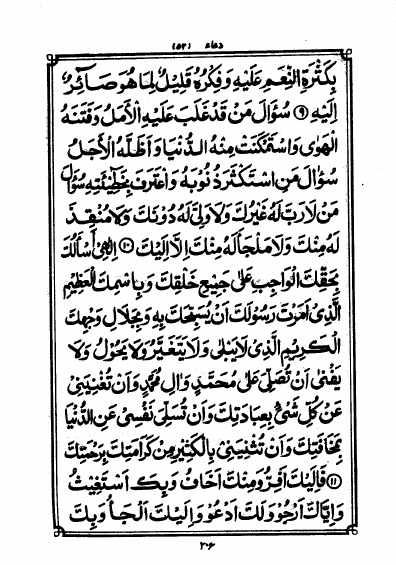 دعاء (۵۲)
بِكَثْرَةِ النِّعَمِ عَلَيْهِ وَفِكْرُهُ قَلِيْلٌ لِمَا هُوَ صَآئِرٌ
اِلَيْهِ ⑨ سُؤَالَ مَنْ قَدْ غَلَبَ عَلَيْهِ الْاَمَلُ وَفَتَنَهُ
الْهَوٰى وَاسْتَمْكَنَتْ مِنْهُ الدُّنْيَا وَاَظَلَّهُ الْاَجَلُ
سُؤَالَ مَنِ اسْتَكْثَرَ ذُنُوْبَهُ وَاعْتَرَفَ بِخَطِيْئَتِهِ سُؤَالَ
مَنْ لَا رَبَّ لَهُ غَيْرُكَ وَلَا وَلِيَّ لَهُ دُوْنَكَ وَلَا مُنْقِذَ
لَهُ مِنْكَ وَلَا مَلْجَاَ لَهُ مِنْكَ اِلَّا اِلَيْكَ ⑩ اِلٰهِيْ اَسْاَلُكَ
بِحَقِّكَ الْوَاجِبِ عَلٰى جَمِيْعِ خَلْقِكَ وَبِاسْمِكَ الْعَظِيْمِ
الَّذِيْ اَمَرْتَ رَسُوْلَكَ اَنْ يُسَبِّحَكَ بِهِ وَبِجَلَالِ وَجْهِكَ
الْكَرِيْمِ الَّذِيْ لَا يَبْلٰى وَلَا يَتَغَيَّرُ وَلَا يَحُوْلُ وَلَا
يَفْنٰى اَنْ تُصَلِّيَ عَلٰى مُحَمَّدٍ وَاٰلِ مُحَمَّدٍ وَاَنْ تُغْنِيَنِيْ
عَنْ كُلِّ شَيْءٍ بِعِبَادَتِكَ وَاَنْ تُسَلِّيَ نَفْسِيْ عَنِ الدُّنْيَا
بِمَخَافَتِكَ وَاَنْ تُثْنِيَنِيْ بِالْكَثِيْرِ مِنْ كَرَامَتِكَ بِرَحْمَتِكَ
⑪ فَاِلَيْكَ اَفِرُّ وَمِنْكَ اَخَافُ وَبِكَ اَسْتَغِيْثُ
وَاِيَّاكَ اَرْجُوْ وَلَكَ اَدْعُوْ وَاِلَيْكَ اَلْجَاُ وَبِكَ
۲۰۶